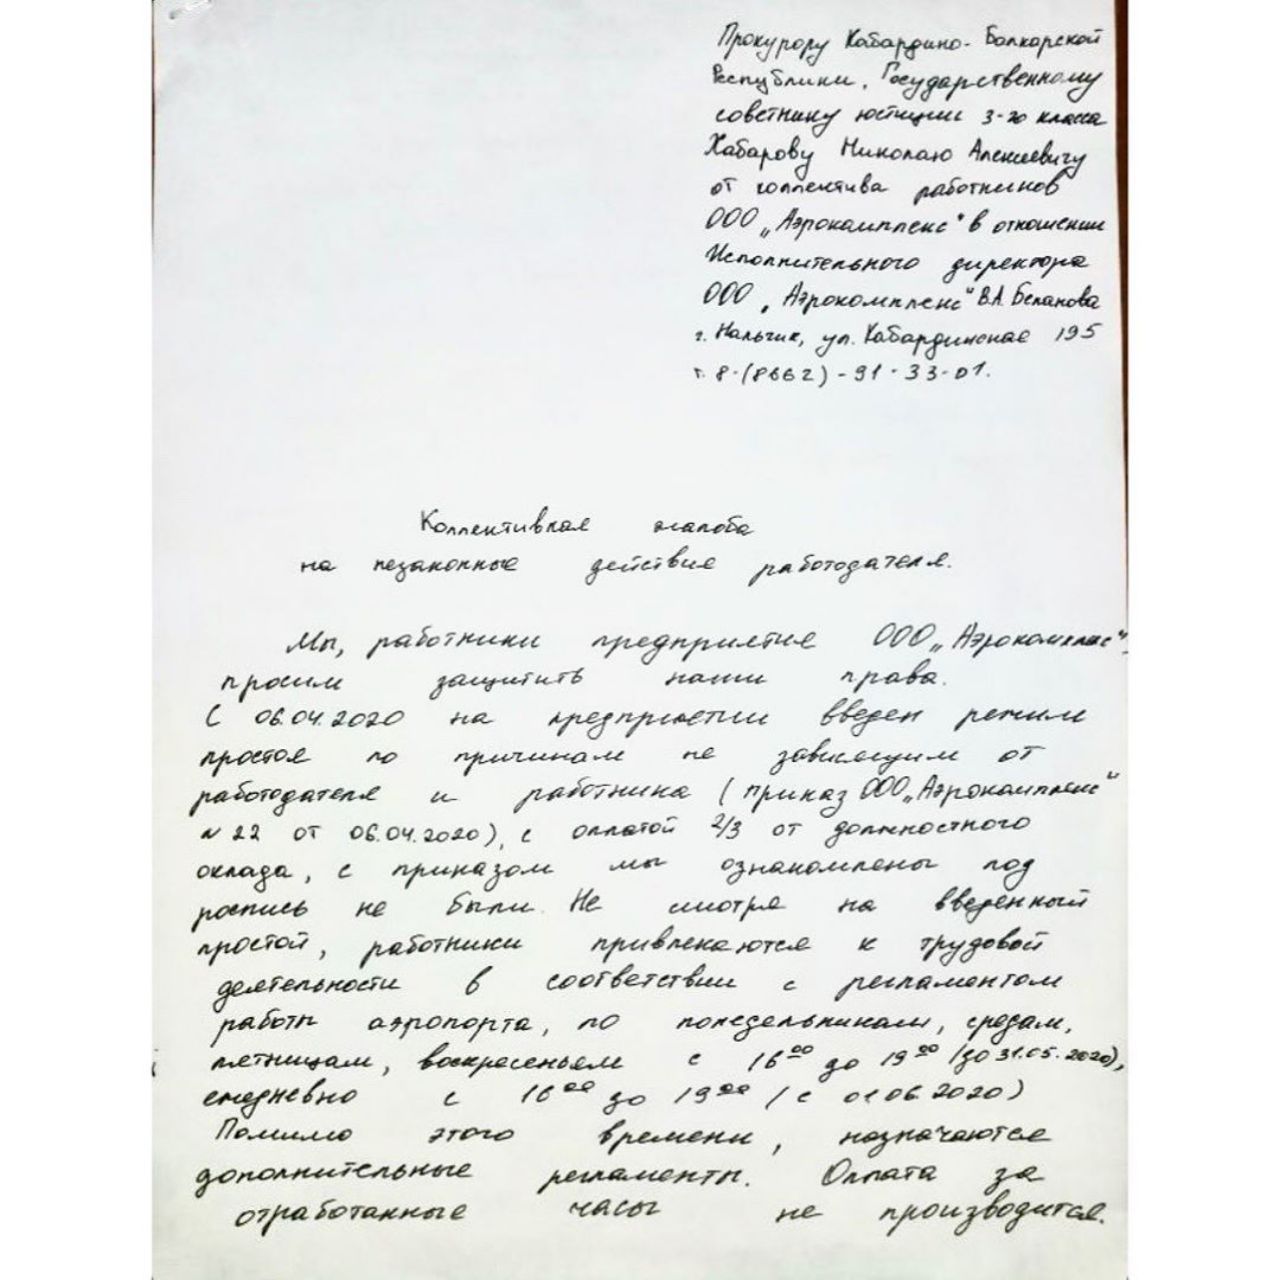 Прокурору Кабардино-Балкарской
Республики, Государственному
советнику юстиции 3-го класса
Хабарову Николаю Алексеевичу
от коллектива работников
ООО „Аэрокомплекс" в отношении
Исполнительного директора
ООО „Аэрокомплекс" В.А. Беканова
г. Нальчик, ул. Кабардинская 195
т. 8-(8662)-91-33-01.
Коллективная жалоба
на незаконные действия работодателя.
Мы, работники предприятия ООО „Аэрокомплекс",
просим защитить наши права.
С 06.04.2020 на предприятии введен режим
простоя по причинам не зависящим от
работодателя и работника (приказ ООО „Аэрокомплекс"
№ 22 от 06.04.2020), с оплатой 2/3 от должностного
оклада, с приказом мы ознакомлены под
роспись не были. Не смотря на введенный
простой, работники привлекаются к трудовой
деятельности в соответствии с регламентом
работы аэропорта, по понедельникам, средам,
пятницам, воскресеньям с 16⁰⁰ до 19⁰⁰ (до 31.05.2020),
ежедневно с 16⁰⁰ до 19⁰⁰ (с 01.06.2020)
Помимо этого времени, назначаются
дополнительные регламенты. Оплата за
отработанные часы не производится.